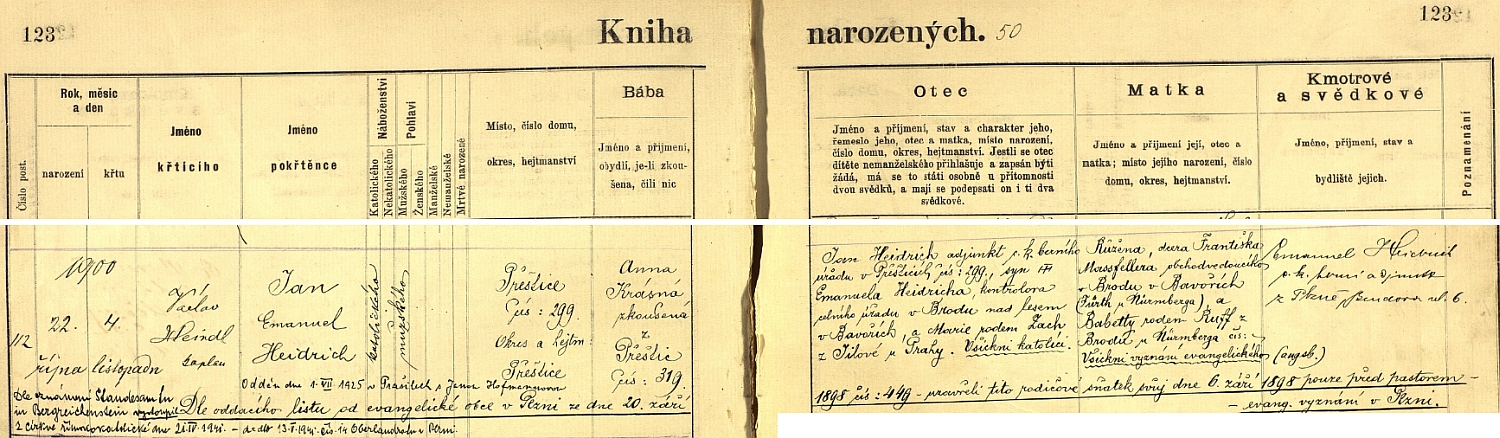 123
Kniha
narozených.
50
123
Číslo post.
Rok, měsíc
a den
narození
křtu
Jméno
křtícího
Jméno
pokřtěnce
Náboženství
Katolického
Nekatolického
Pohlaví
Mužského
Ženského
Manželské
Nemanželské
Mrtvě narozené
Místo, číslo domu,
okres, hejtmanství
Bába
Jméno a příjmení,
obydlí, je-li zkou-
šena, čili nic
Otec
Jméno a příjmení, stav a charakter jeho,
řemeslo jeho, otec a matka, místo narození,
číslo domu, okres, hejtmanství. Jestli se otec
dítěte nemanželského přihlašuje a zapsán býti
žádá, má se to státi osobně u přítomnosti
dvou svědků, a mají se podepsati on i ti dva
svědkové.
Matka
Jméno a příjmení její, otec a
matka; místo jejího narození, číslo
domu, okres, hejtmanství.
Kmotrové
a svědkové
Jméno, příjmení, stav a
bydliště jejich.
Poznamenání
112
1900
22.
října
4.
listopadu
Václav
Heindl
kaplan
Jan
Emanuel
Heidrich
katolického
mužského
Přeštice
čís: 299.
Okres a hejtm:
Přeštice
Anna
Krásná
zkoušená
z
Přeštic
čís: 319.
Jan Heidrich adjunkt c. k. berního
úřadu v Přešticích čís: 299, syn
Emanuela Heidricha, kontrolora
celního úřadu v Brodu nad lesem
v Bavořích, a Marie rodem Zach
z Jílové u Prahy. Všichni katolíci.
Růžena, dcera Františka
Massfellera obchodvedoucího
v Brodu v Bavořích
(Fürth u Nürmberga), a
Babetty rodem Ruff z
Brodu u Nürmberga čís:
Všichni vyznání evangelického (augsb.)
Emanuel Heidrich
c. k. berní adjunkt
z Plzně, ul. 6.
Oddán dne 1. VII. 1925 v Prašilech s Janou Hofmannovou
Dle oznámení Standesamtu
in Bergreichenstein vystoupil
z církve římskokatolické dne 1941. - 1941. čís. 14 Oberlandratu v Plzni.
Dle oddacího listu od evangelické obce v Plzni ze dne 20. září
1898 čís: 449 - uzavřeli tito rodičové sňatek svůj dne 6. září 1898 pouze před pastorem -
- evang. vyznání v Plzni.